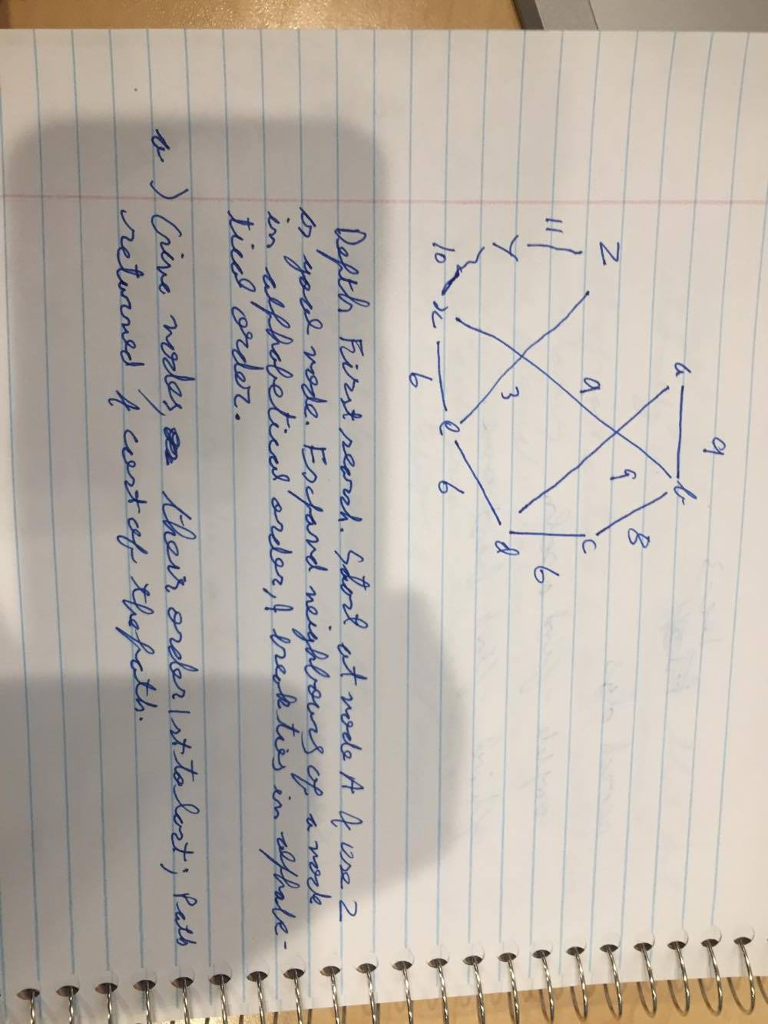 a 9 b
8
9
c
9
6
z
3
d
11
y
e 6
10 x 6
Depth First search. Start at node A & use Z
is goal node. Expand neighbours of a node
in alphabetical order, & break ties in alphabe-
tical order.
a) Give nodes, their order 1st to last; Path
returned & cost of the path.